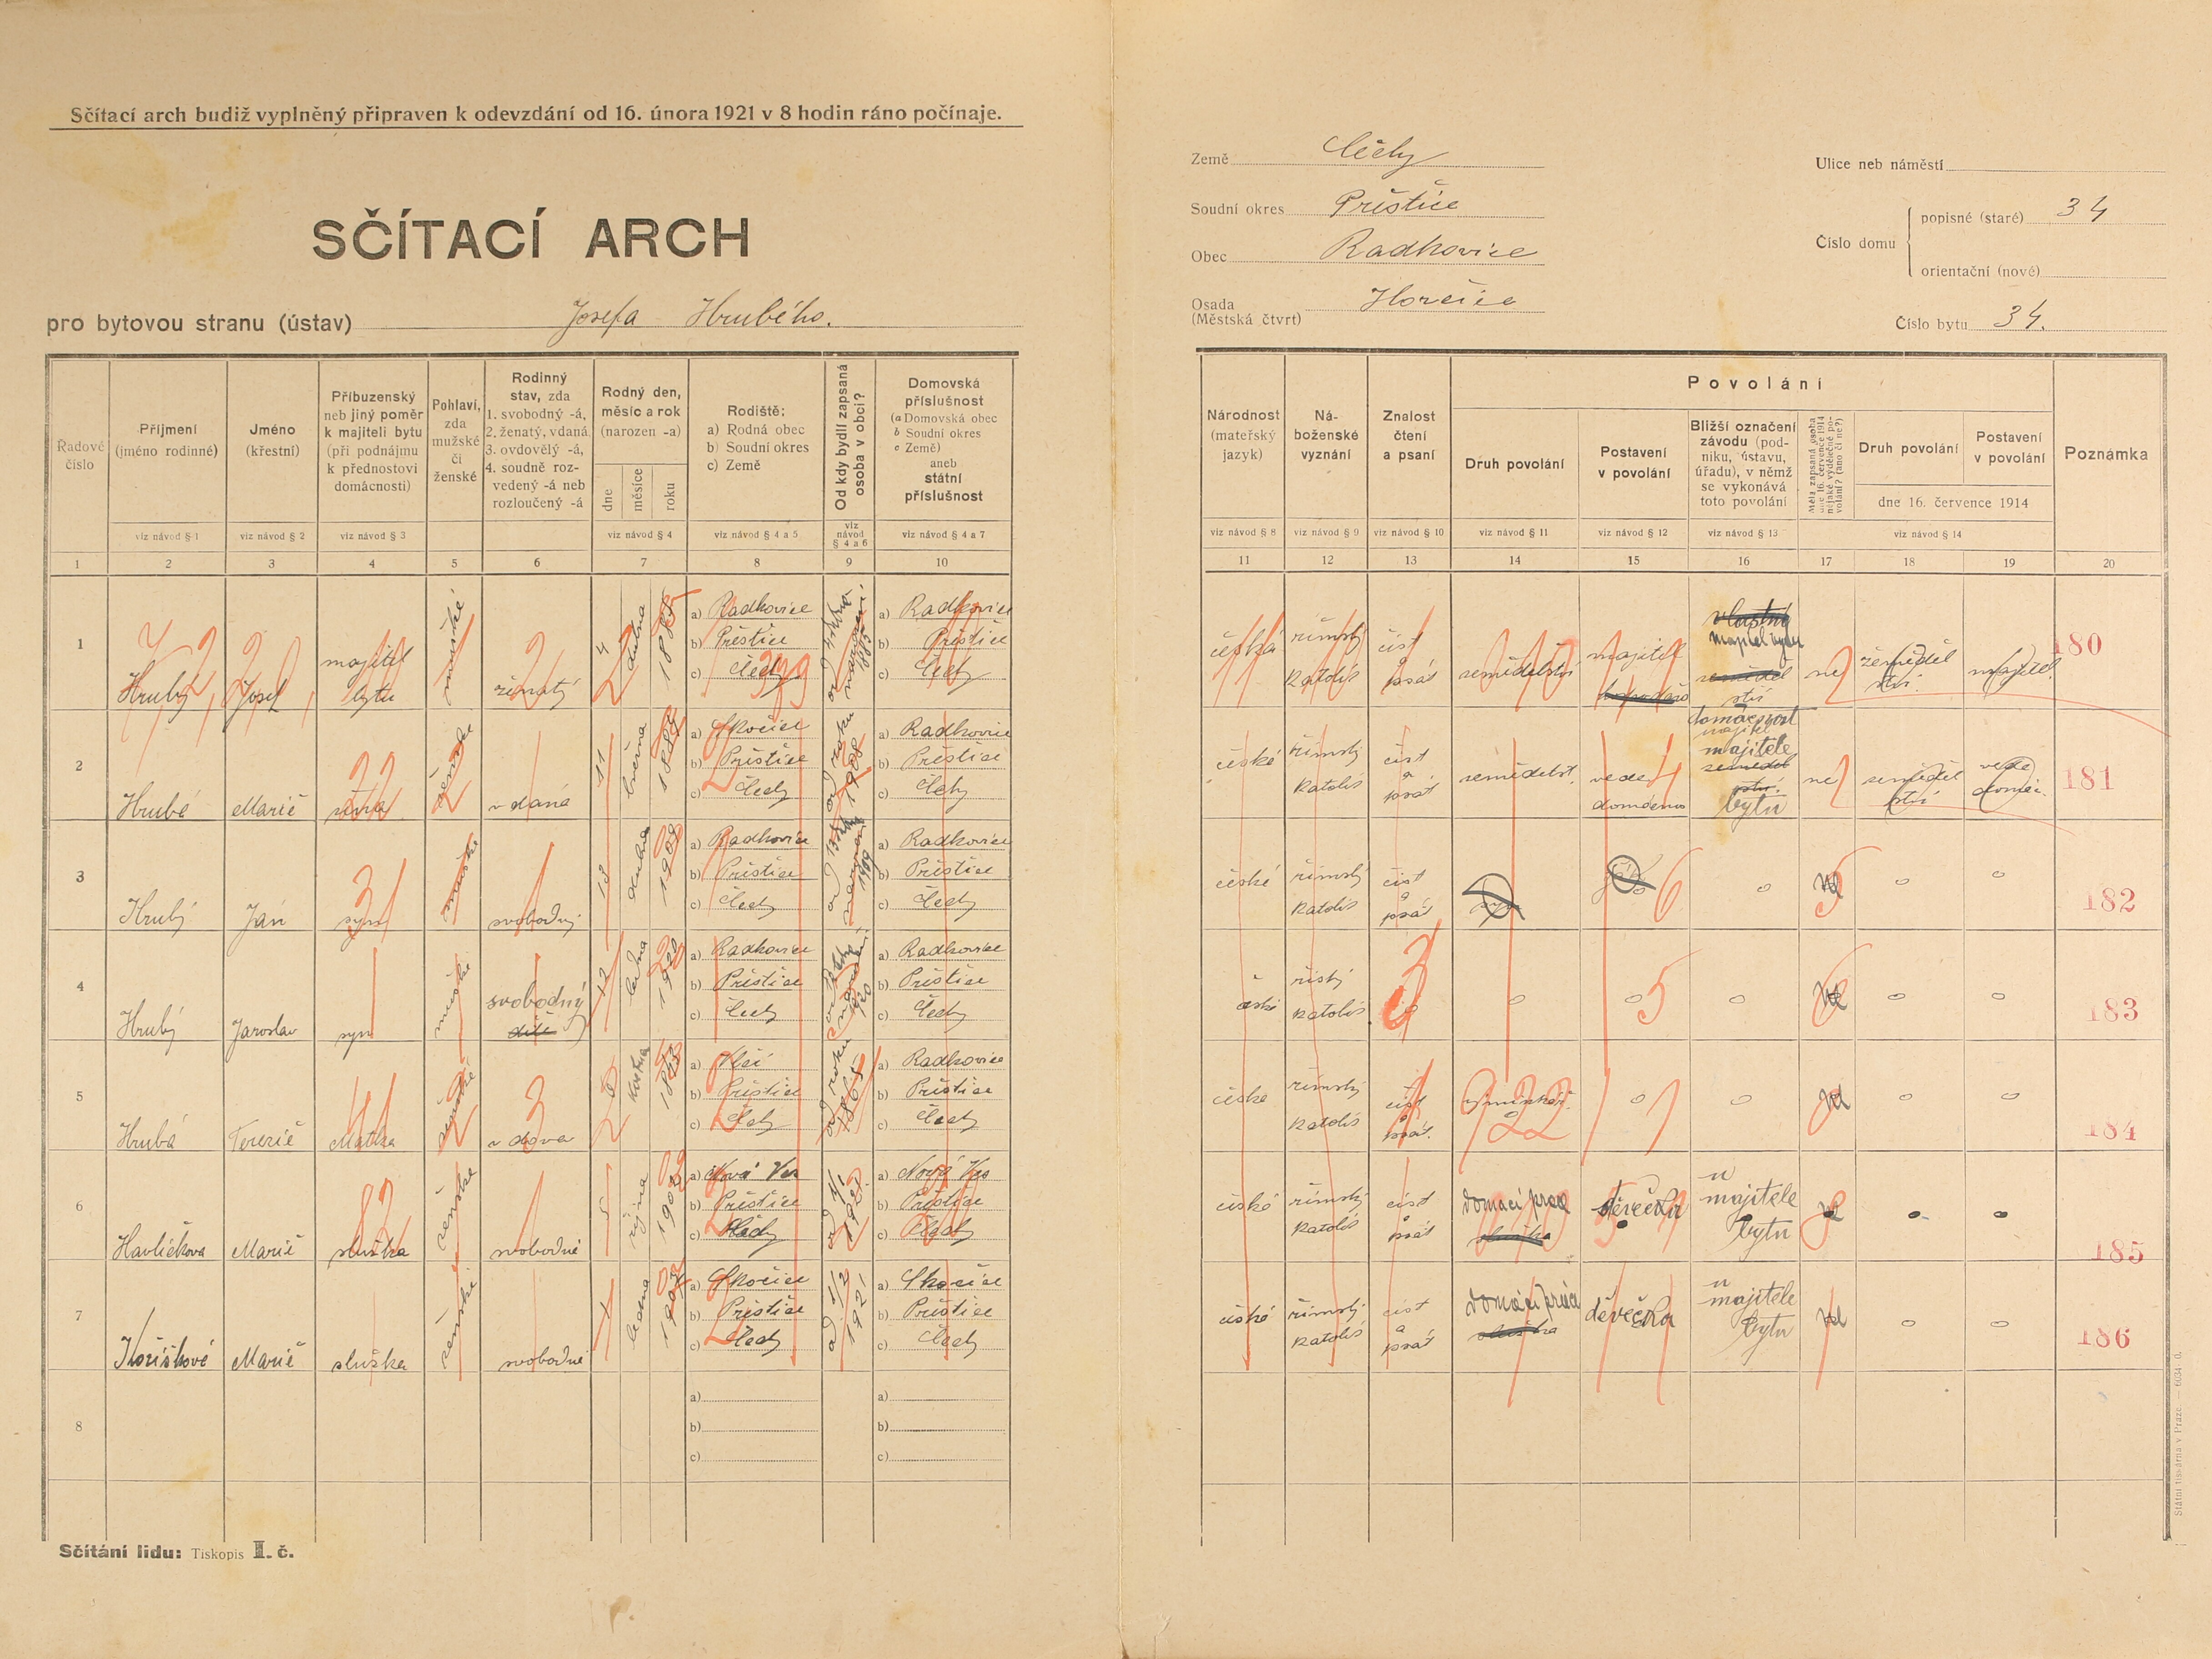 Sčítací arch budiž vyplněný připraven k odevzdání od 16. února 1921 v 8 hodin ráno počínaje.
SČÍTACÍ ARCH
pro bytovou stranu (ústav) Josefa Hrubého.
Země Čechy
Soudní okres Přeštice
Obec Radkovice
Osada Horčice
(Městská čtvrt)
Ulice neb náměstí
Číslo domu
popisné (staré) 34
orientační (nové)
Číslo bytu 34.
Řadové číslo
Příjmení (jméno rodinné)
Jméno (křestní)
Příbuzenský neb jiný poměr k majiteli bytu (při podnájmu k přednostovi domácnosti)
Pohlaví, zda mužské či ženské
Rodinný stav, zda 1. svobodný -á, 2. ženatý, vdaná 3. ovdovělý -á, 4. soudně rozvedený -á neb rozloučený -á
Rodný den, měsíc a rok (narozen -a)
dne měsíce roku
Rodiště:
a) Rodná obec
b) Soudní okres
c) Země
Od kdy bydlí zapsaná osoba v obci?
Domovská příslušnost
(a Domovská obec
b Soudní okres
c Země)
aneb státní příslušnost
viz návod § 1 viz návod § 2 viz návod § 3 viz návod § 4 viz návod § 4 a 5 viz návod § 4 a 6 viz návod § 4 a 7
1 2 3 4 5 6 7 8 9 10
Národnost (mateřský jazyk)
Náboženské vyznání
Znalost čtení a psaní
Povolání
Druh povolání
Postavení v povolání
Bližší označení závodu (podniku, ústavu, úřadu), v němž se vykonává toto povolání
Měla zapsaná osoba dne 16. července 1914 nějaké výdělečné povolání? (ano či ne?)
Druh povolání
Postavení v povolání
dne 16. července 1914
Poznámka
viz návod § 8 viz návod § 9 viz návod § 10 viz návod § 11 viz návod § 12 viz návod § 13 viz návod § 14
11 12 13 14 15 16 17 18 19 20
1 Hrubý Josef majitel bytu mužské ženatý 4 dubna 1885
a) Radkovice b) Přeštice c) Čechy
a) Radkovice b) Přeštice c) Čechy
česká římsky katolis číst a psát zemědelství majitel ne zemědelství majitel 180
2 Hrubé Marie ženské vdaná 11 března
a) Skočice b) Přeštice c) Čechy
od roku 1908
a) Radkovice b) Přeštice c) Čechy
české římský katolis číst a psát zemědelst. vede domácno majitele bytu ne zemědelství vede domác. 181
3 Hrubý Jan syn mužské svobodný 13 dubna
a) Radkovice b) Přeštice c) Čechy
a) Radkovice b) Přeštice c) Čechy
české římský katolis číst a psát 6 182
4 Hrubý Jaroslav syn mužské svobodný 12 ledna 1920
a) Radkovice b) Přeštice c) Čechy
a) Radkovice b) Přeštice c) Čechy
české katolis 5 183
5 Hrubá Terezie Matka ženské vdova
a) Vlčí b) Přeštice c) Čechy
od roku 1865
a) Radkovice b) Přeštice c) Čechy
česke římský katolis číst a psát. 184
6 Havlíčkova Marie služka ženske svobodné 5 října 1902
a) Nová Ves b) Přeštice c) Čechy
a) Nová Ves b) Přeštice c) Čechy
české římský katolis číst a psát domácí prace děvečka u majitele bytu 185
7 Marie služka ženské svobodné 1 ledna
a) Skočice b) Přeštice c) Čechy
od 1/2 1921
a) Skočice b) Přeštice c) Čechy
české římský katolis číst a psát domácí práce děvečka u majitele bytu 186
8
a)
b)
c)
a)
b)
c)
Sčítání lidu: Tiskopis I. č.
Státní tiskárna v Praze. — 6034 d.